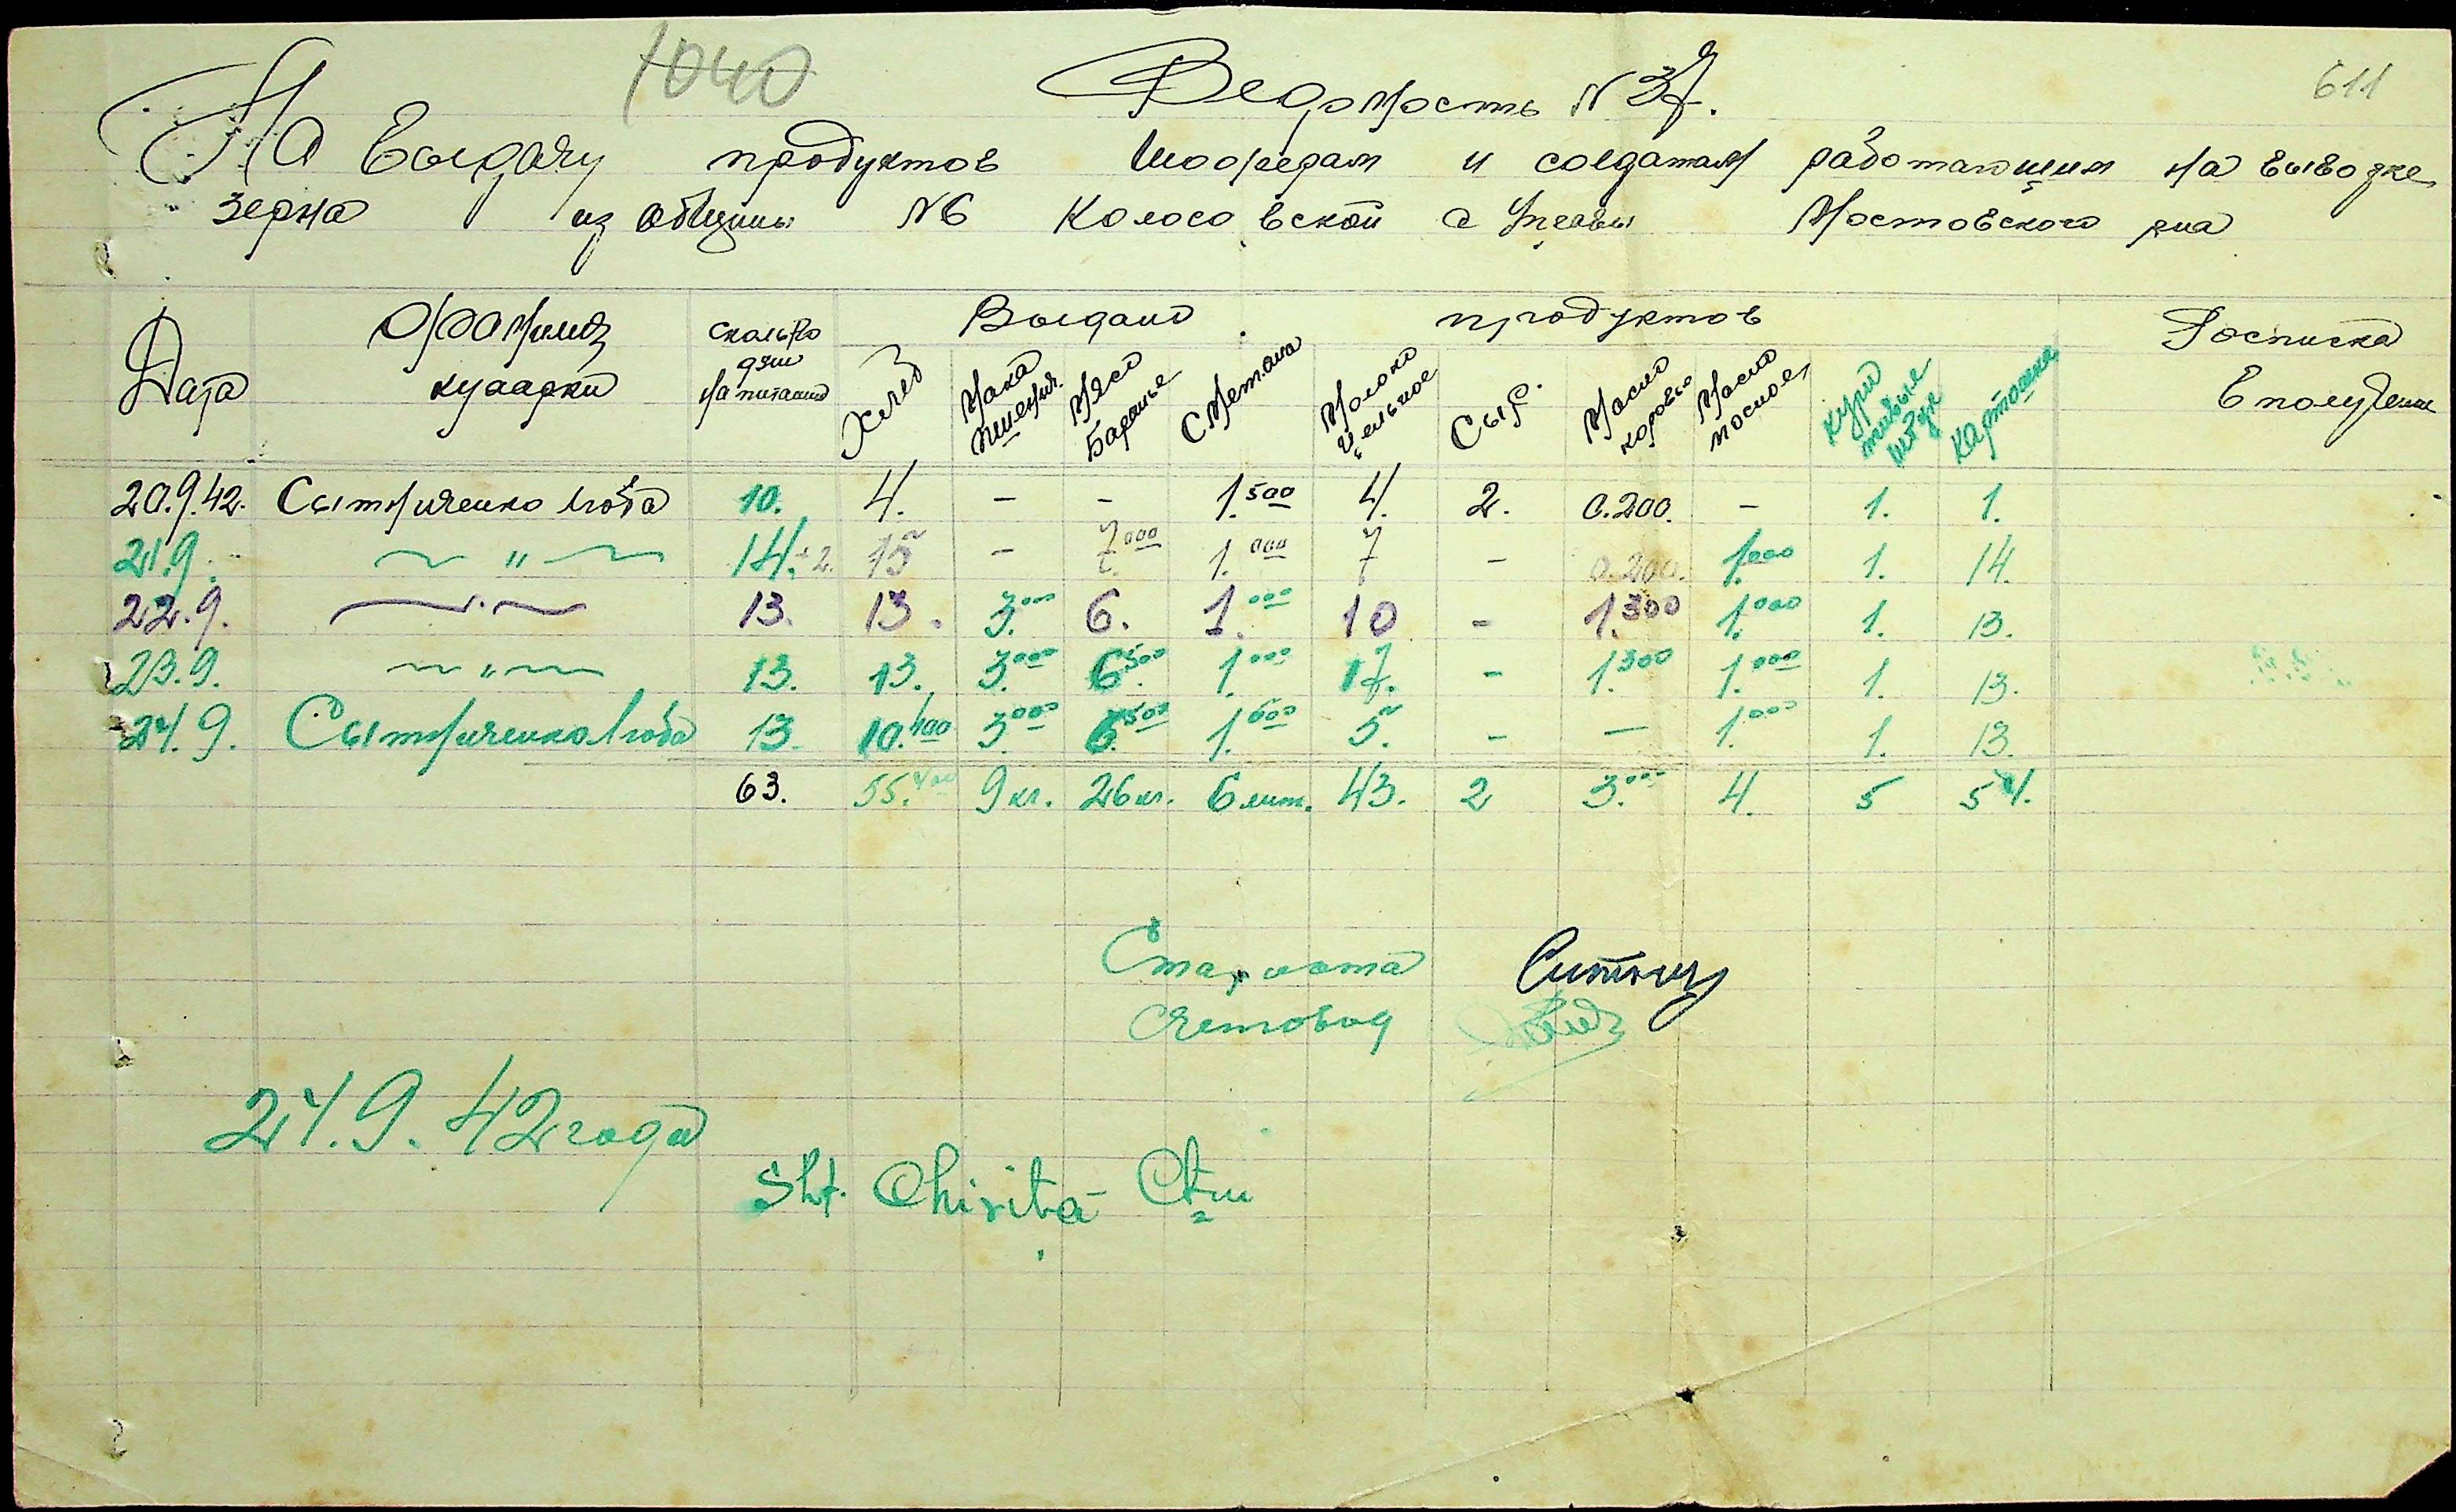 1040
611
Ведомость N 37.
На выдачу продуктов шоферам и солдатам работающим на вывозке
зерна из общины N6 Колосовской с Управы Мостовского р-на
Дата Фамилия кухарки сколько душ на питании Выдано продуктов Росписка в получении
Хлеб Мука пшенич. Мясо Баранье Сметана Молоко цельное Сыр. Масло коровье Масло посное Куры живые штук Картошка
20.9.42. Сытниченко Люба 10. 4. - - 1.500 4. 2. 0.200. - 1. 1.
21.9. ~ " ~ 14.+2. 15 - 7.000 1.000 7 - 0.200. 1.000 1. 14.
22.9. ~ . ~ 13. 13. 3.000 6. 1.000 10 - 1.300 1.000 1. 13.
23.9. ~ " ~ 13. 13. 3.000 6.500 1.000 17. - 1.300 1.000 1. 13.
24.9. Сытниченко Люба 13 10.400 3.000 6.500 1.600 5. - - 1.000 1. 13.
63. 55.400 9 кг. 26 кг. 6 лит. 43. 2 3.000 4. 5 54.
Староста
Счетовод
24.9.42 года
Sht. Chirita